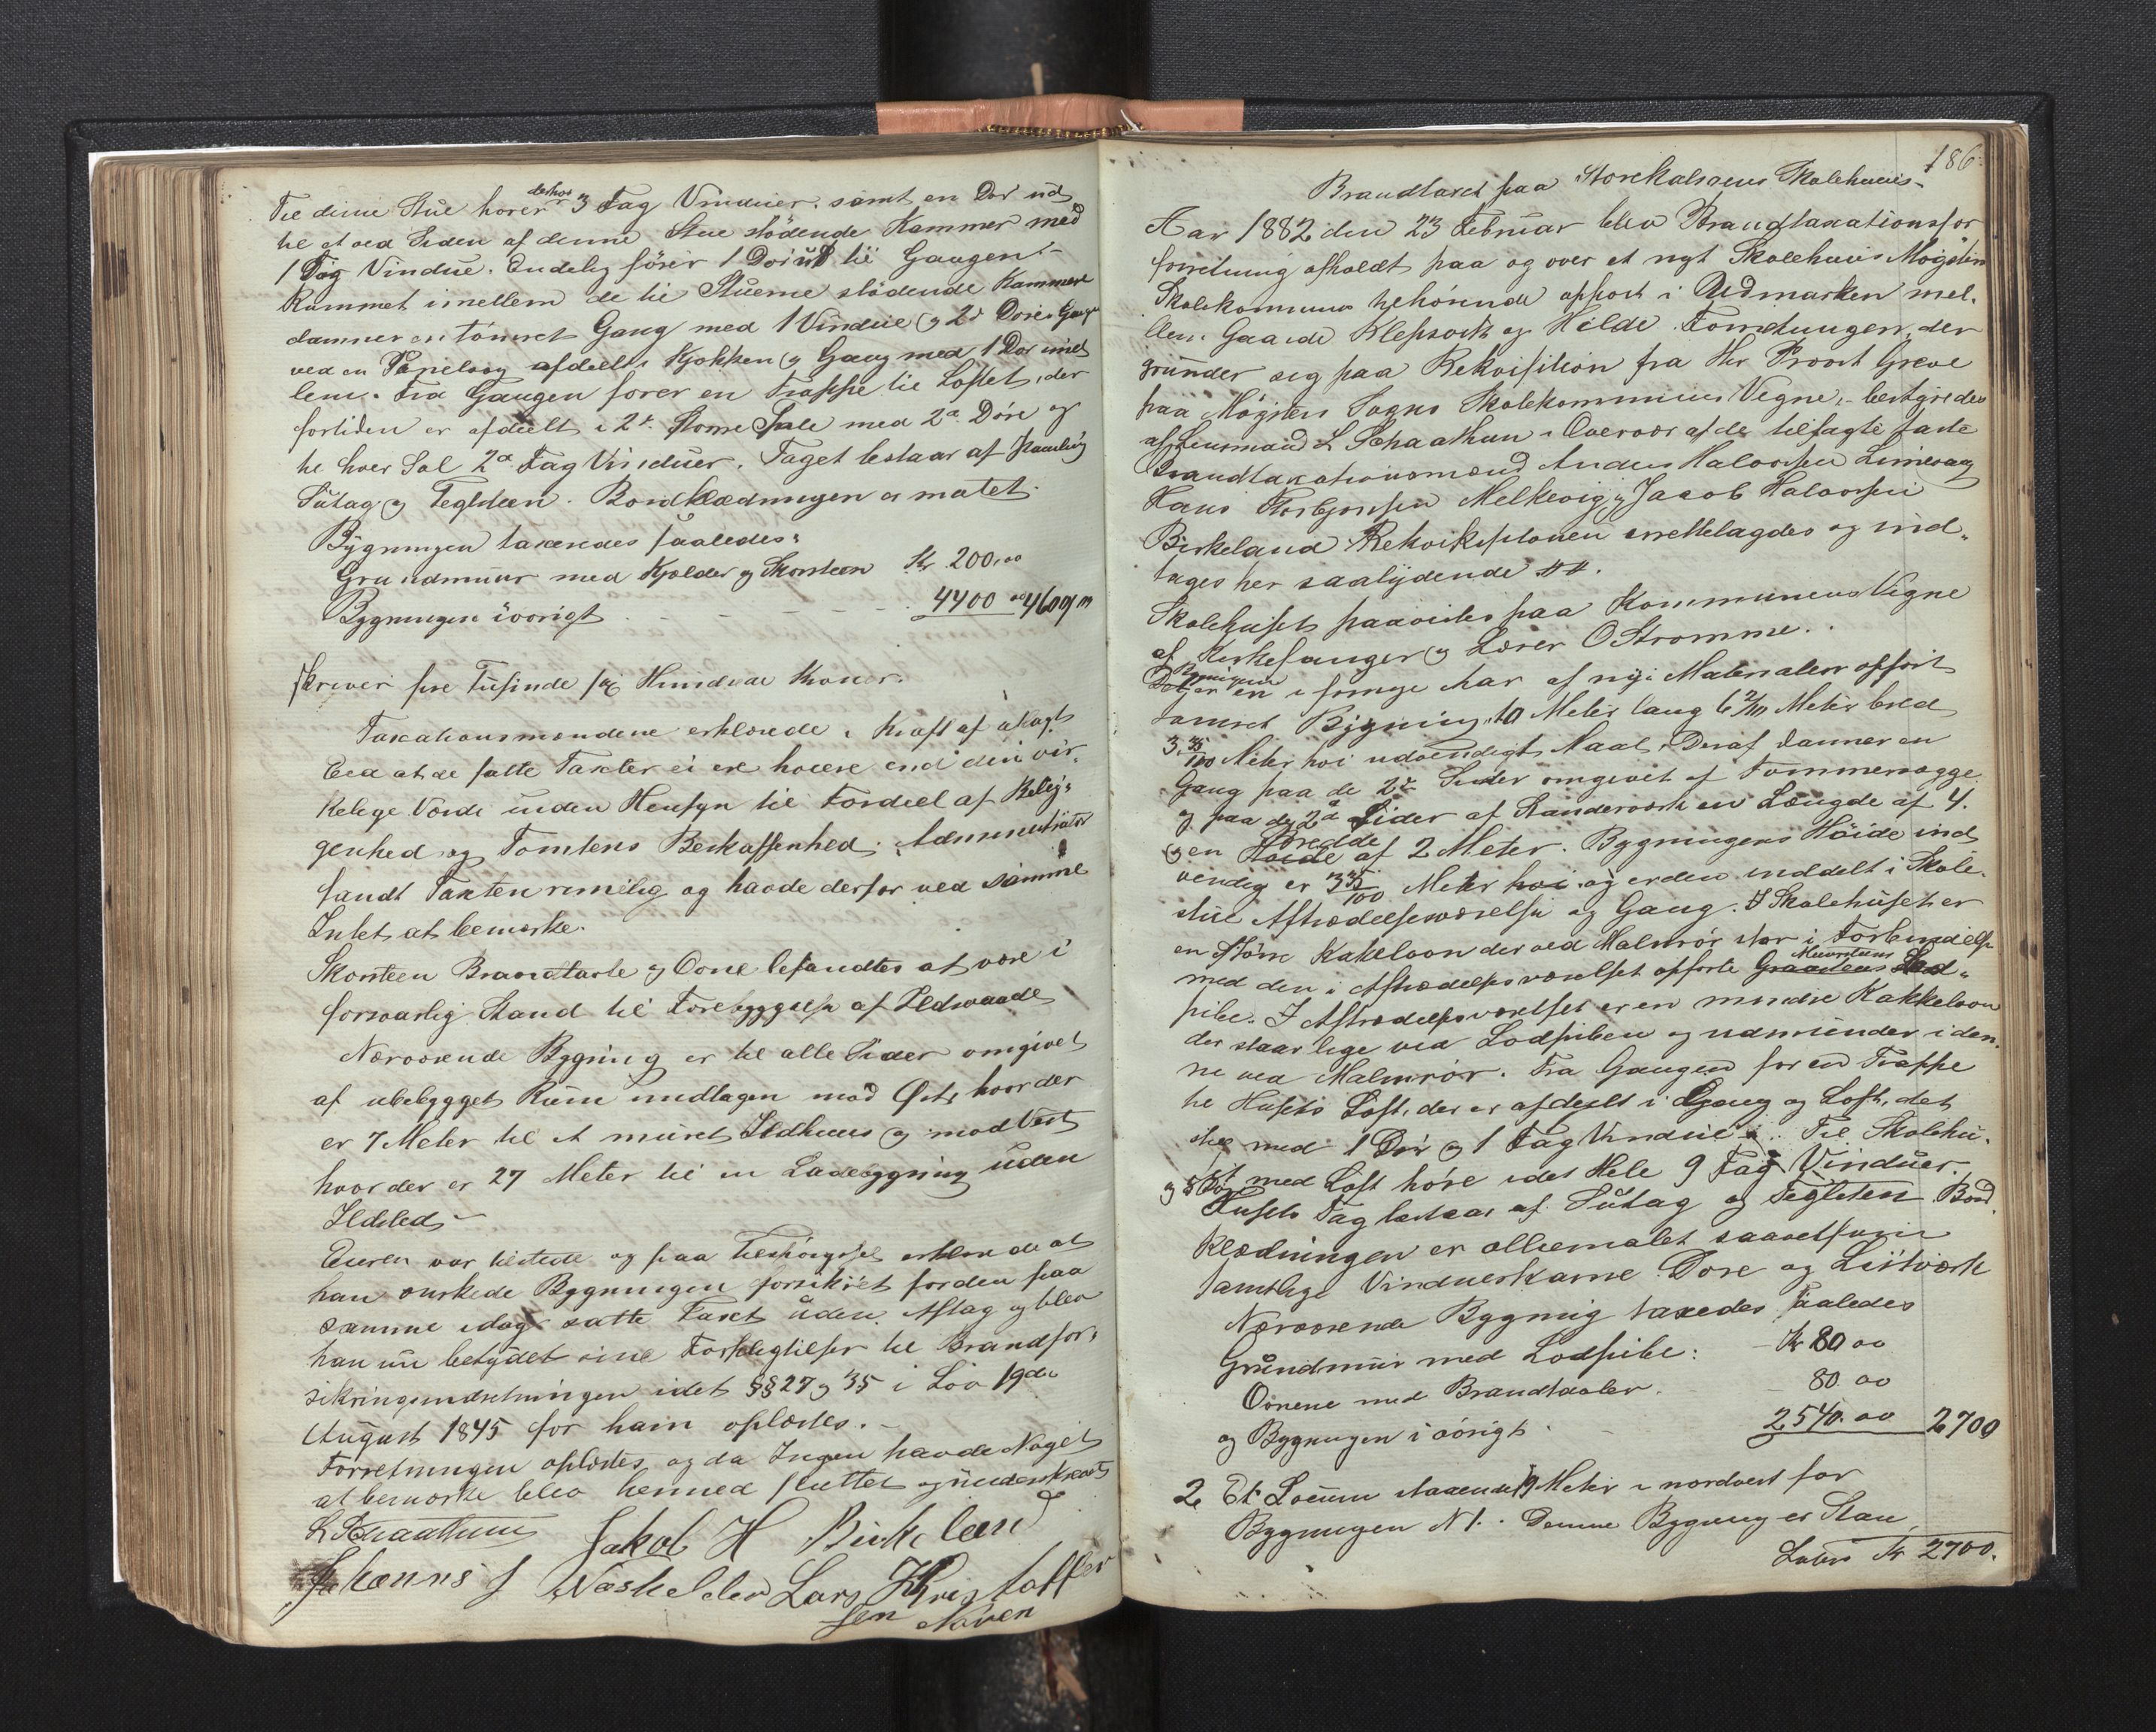 Til denne Stue hører derhos 3 Fag Vinduer, samt en Dør ud
til et ved Siden af denne Stue stødende Kammer med
1 Fag Vindue. Endelig fører 1 Dør ud til Gangen.
Rummet imellem de til Stuerne stødende Kammere
danner en tømret Gang med 1 Vindue og 2 Døre Gange
ved en Panelvæg afdeelt i Kjøkken og Gang med 1 Dør imel
lem. Fra Gangen fører en Trappe til Loftet, der
fortiden er afdeelt i 2de større Sale med 2de Døre og
til hver Sal 2de Fag Vinduer. Taget bestaar af
Sutag og Teglsteen. Bordklædningen er malet.
Bygningen taxeredes saaledes:
Grundmuur med Kjelder og Skorsteen Kr. 200,00
Bygningen iøvrigt 4400 00 4600
skriver fire Tusinde sex Hundrede Kroner.
Taxationsmændene erklærede i Kraft af aflagt
Eed at de satte Taxter ei ere høiere end den vir-
kelige Værdi uden Hensyn til Fordeel af Belig-
genhed og Tomtens Beskaffenhed. Administrator
fandt Taxten rimelig og havde derfor ved samme
Intet at bemærke.
Skorsteen Brandtavle og Ovne befandtes at være i
forsvarlig Stand til Forebyggelse af Ildsvaade
Nærværende Bygning er til alle Sider omgivet
af ubebygget Rum undtagen mod Øst, hvor der
er 7 Meter til et muret Ildhuus og mod Vest
hvor der er 27 Meter til en Ladebygning uden
Ildsted.
Eieren var tilstede og paa Tilspørgsel erklærede at
han ønskede Bygningen forsikret for den paa
samme idag satte Taxt uden Aftag og blev
han nu betydet sine Forpligtelser til Brandfor-
sikringsindretningen idet §§ 27 og 35 i Lov 19de
August 1845 for ham oplæstes.
Forretningen oplæstes og da Ingen havde Noget
at bemærke blev hermed sluttet og underskrevet
L Schaathun Jakob H Birkeland
Johannis J Waskelden Lars Kristoffer
sen Nøven
186
Brandtaxt paa Storekalsøens Skolehuus
Aar 1882 den 23 Februar blev Brandtaxationsfor
forretning afholdt paa og over et nyt Skolehuus Møgster
Skolekommune tilhørende opført i Udmarken mel-
lem Gaarde Klepsvik og Hilde. Forretningen, der
grunder seg paa Rekvisition fra Hr Provst Greve
paa Møgsters Sogns Skolekommunes Vegne, bestyredes
af Lensmand L Schaathun i Overvær af de tilsagte faste
Brandtaxationsmænd Anders Halvorsen Limesag
Hans Torbjørnsen Melkevig og Jacob Halvorsen
Birkeland. Rekvisitionen irettelagdes og ind-
tages her saalydende ##.
Skolehuset paavistes paa Kommunens Vegne
af Kirkesanger og Lærer O Strømme.
Bygningen
Det er en i forrige Aar af nyi Materialer opført
tømret Bygning, 10 Meter lang 6 2/10 Meter bred
3, 35/100 Meter høi udvendigt Maal. Deraf danner en
Gang paa de 2de Sider omgivet af Tømmervægge
og paa de 2de Sider af Standerværk en Længde af 4.
og en Bredde Høide af 2 Meter. Bygningens Høide ind
vendig er 3 35/100 Meter høi og er den inddelt i Skole-
stue Aftrædelsesværelse og Gang. I Skolehuset er
en større Kakelovn der ved Malmrør star i Forbindelse
med den i Aftrædelsesværelset opførte Graasteens Muursteens Lod-
pibe. I Aftrædelsesværelset er en mindre Kakkelovn
der staar lige ved Lodpiben og udmunder i den-
ne ved Malmrør. Fra Gangen før en Trappe
til Husets Loft, der er afdeelt i Gang og Loft, det
med 1 Dør og 1 Fag Vindue. Til Skolehu-
set med Loft høre i det Hele 9 Fag Vinduer.
og 5 Døre
Husets Tag bestaar af Sutag og Teglsten. Bord
klædningen er olliemalet saavelsom
samtlige Vindueskarme Døre og Listværk
Nærværende Bygning taxeredes saaledes
Grundmur med Lodpibe: Kr 80 00
Ovnene med Brandtavler. 80 00
og Bygningen iøvrigt. 2540. 00 2700
2 Et Locum staaende 19 Meter i nordvest for
Bygningen N 1. Denne Bygning er Stav
Lateris Kr 2700.